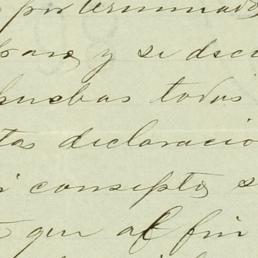 por terminado
y se dec
pruebas todas
tas declaracio
i consepto, s
que al fin